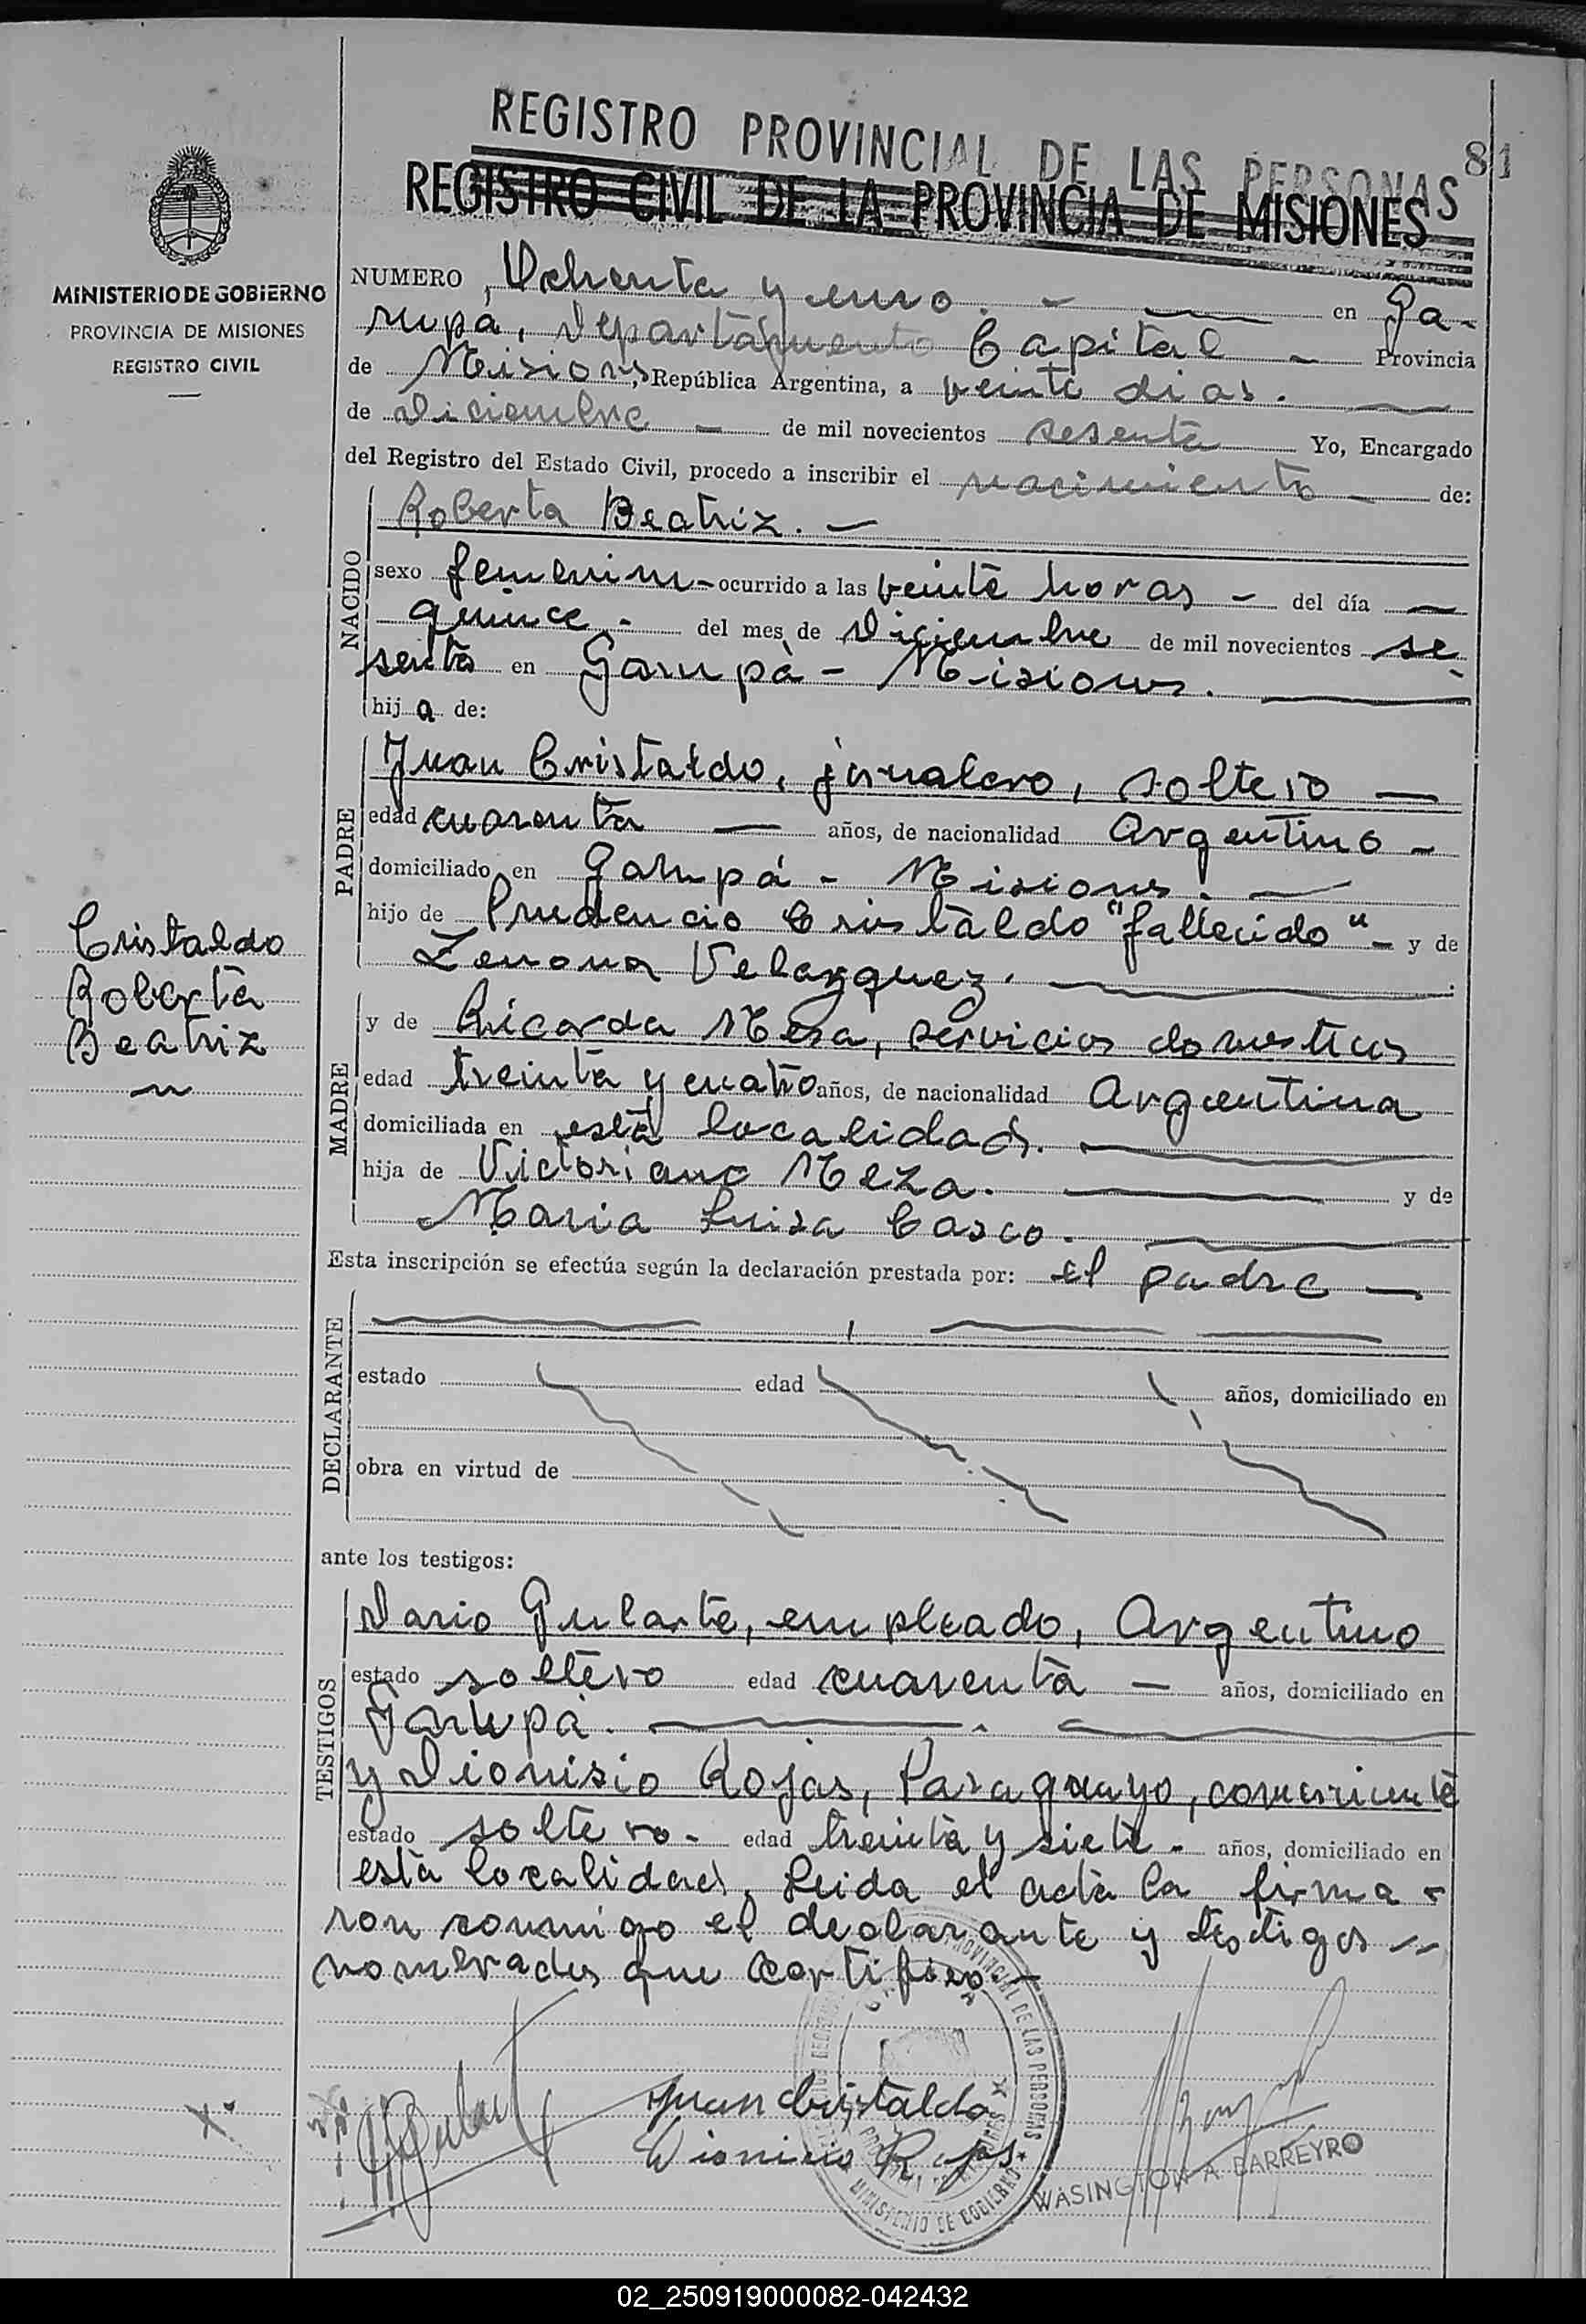 REGISTRO PROVINCIAL DE LAS PERSONAS
81
REGISTRO CIVIL DE LA PROVINCIA DE MISIONES
MINISTERIO DE GOBIERNO
PROVINCIA DE MISIONES
REGISTRO CIVIL
NUMERO Ochenta y uno. — en Ga-
rupa, Departamento Capital — Provincia
de Misiones, República Argentina, a veinte dias.
de Diciembre — de mil novecientos sesenta Yo, Encargado
del Registro del Estado Civil, procedo a inscribir el nacimiento — de:
NACIDO
Roberta Beatriz. —
sexo femenino - ocurrido a las veinte horas - del día —
quince - del mes de Diciembre de mil novecientos se-
senta en Garupà - Misiones.
hij a de:
PADRE
Juan Cristaldo, jornalero, soltero —
edad cuarenta — años, de nacionalidad Argentino -
domiciliado en Garupá - Misiones. —
hijo de Prudencio Cristaldo "fallecido" - y de
Zenona Velazquez.
MADRE
y de Ricarda Meza, servicios domesticos
edad treinta y cuatro años, de nacionalidad Argentina
domiciliada en està localidad.
hija de Victoriano Meza. y de
Maria Luisa Casco.
Esta inscripción se efectúa según la declaración prestada por: el padre —.
DECLARANTE
estado edad años, domiciliado en
obra en virtud de
ante los testigos:
TESTIGOS
Dario Gularte, empleado, Argentino
estado soltero edad cuarenta — años, domiciliado en
Garupà.
y Dionisio Rojas, Paraguayo, comerciante
estado soltero - edad treinta y siete - años, domiciliado en
està localidad, Leida el acta la firma-
ron conmigo el declarante y testigos —
nombrados que certifico. —
Cristaldo
Roberta
Beatriz
Juan Cristaldo
Dionicio Rojas
PROVINCIAL DE LAS PERSONAS
MINISTERIO DE GOBIERNO
WASINGTON A. BARREYRO
02_250919000082-042432